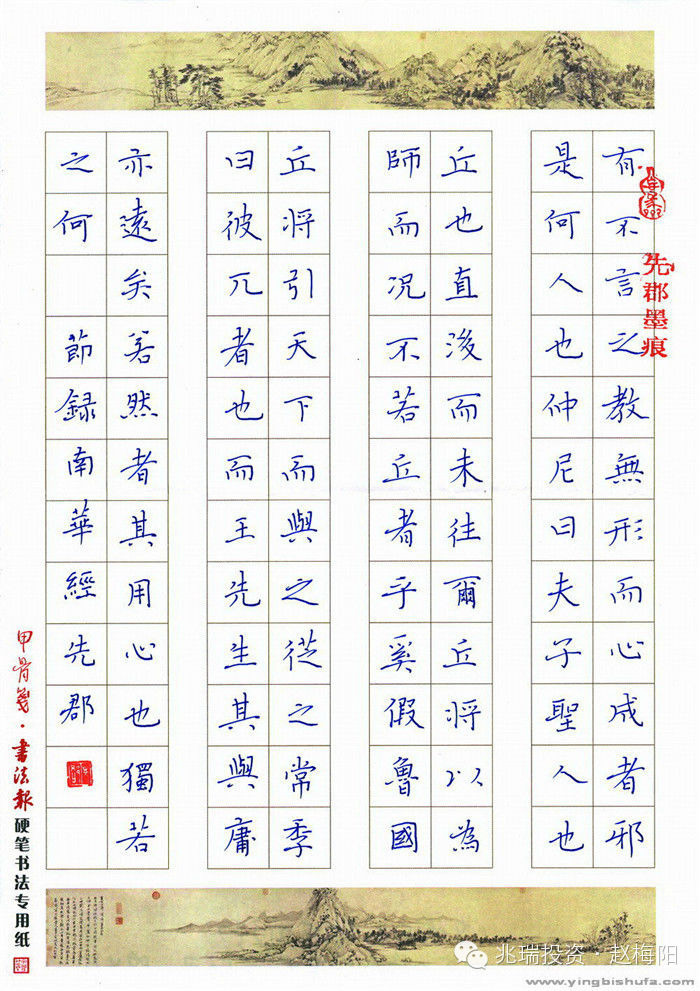 有不言之教無形而心成者邪
是何人也仲尼曰夫子聖人也
丘也直後而未往爾丘将以為
師而况不若丘者乎奚假魯國
丘将引天下而與之從之常季
曰彼兀者也而王先生其與庸
亦遠矣若然者其用心也獨若
之何 節録南華經先郡
先郡墨痕
甲骨箋·書法報硬笔书法专用纸
兆瑞投资·赵梅阳
www.yingbishufa.com